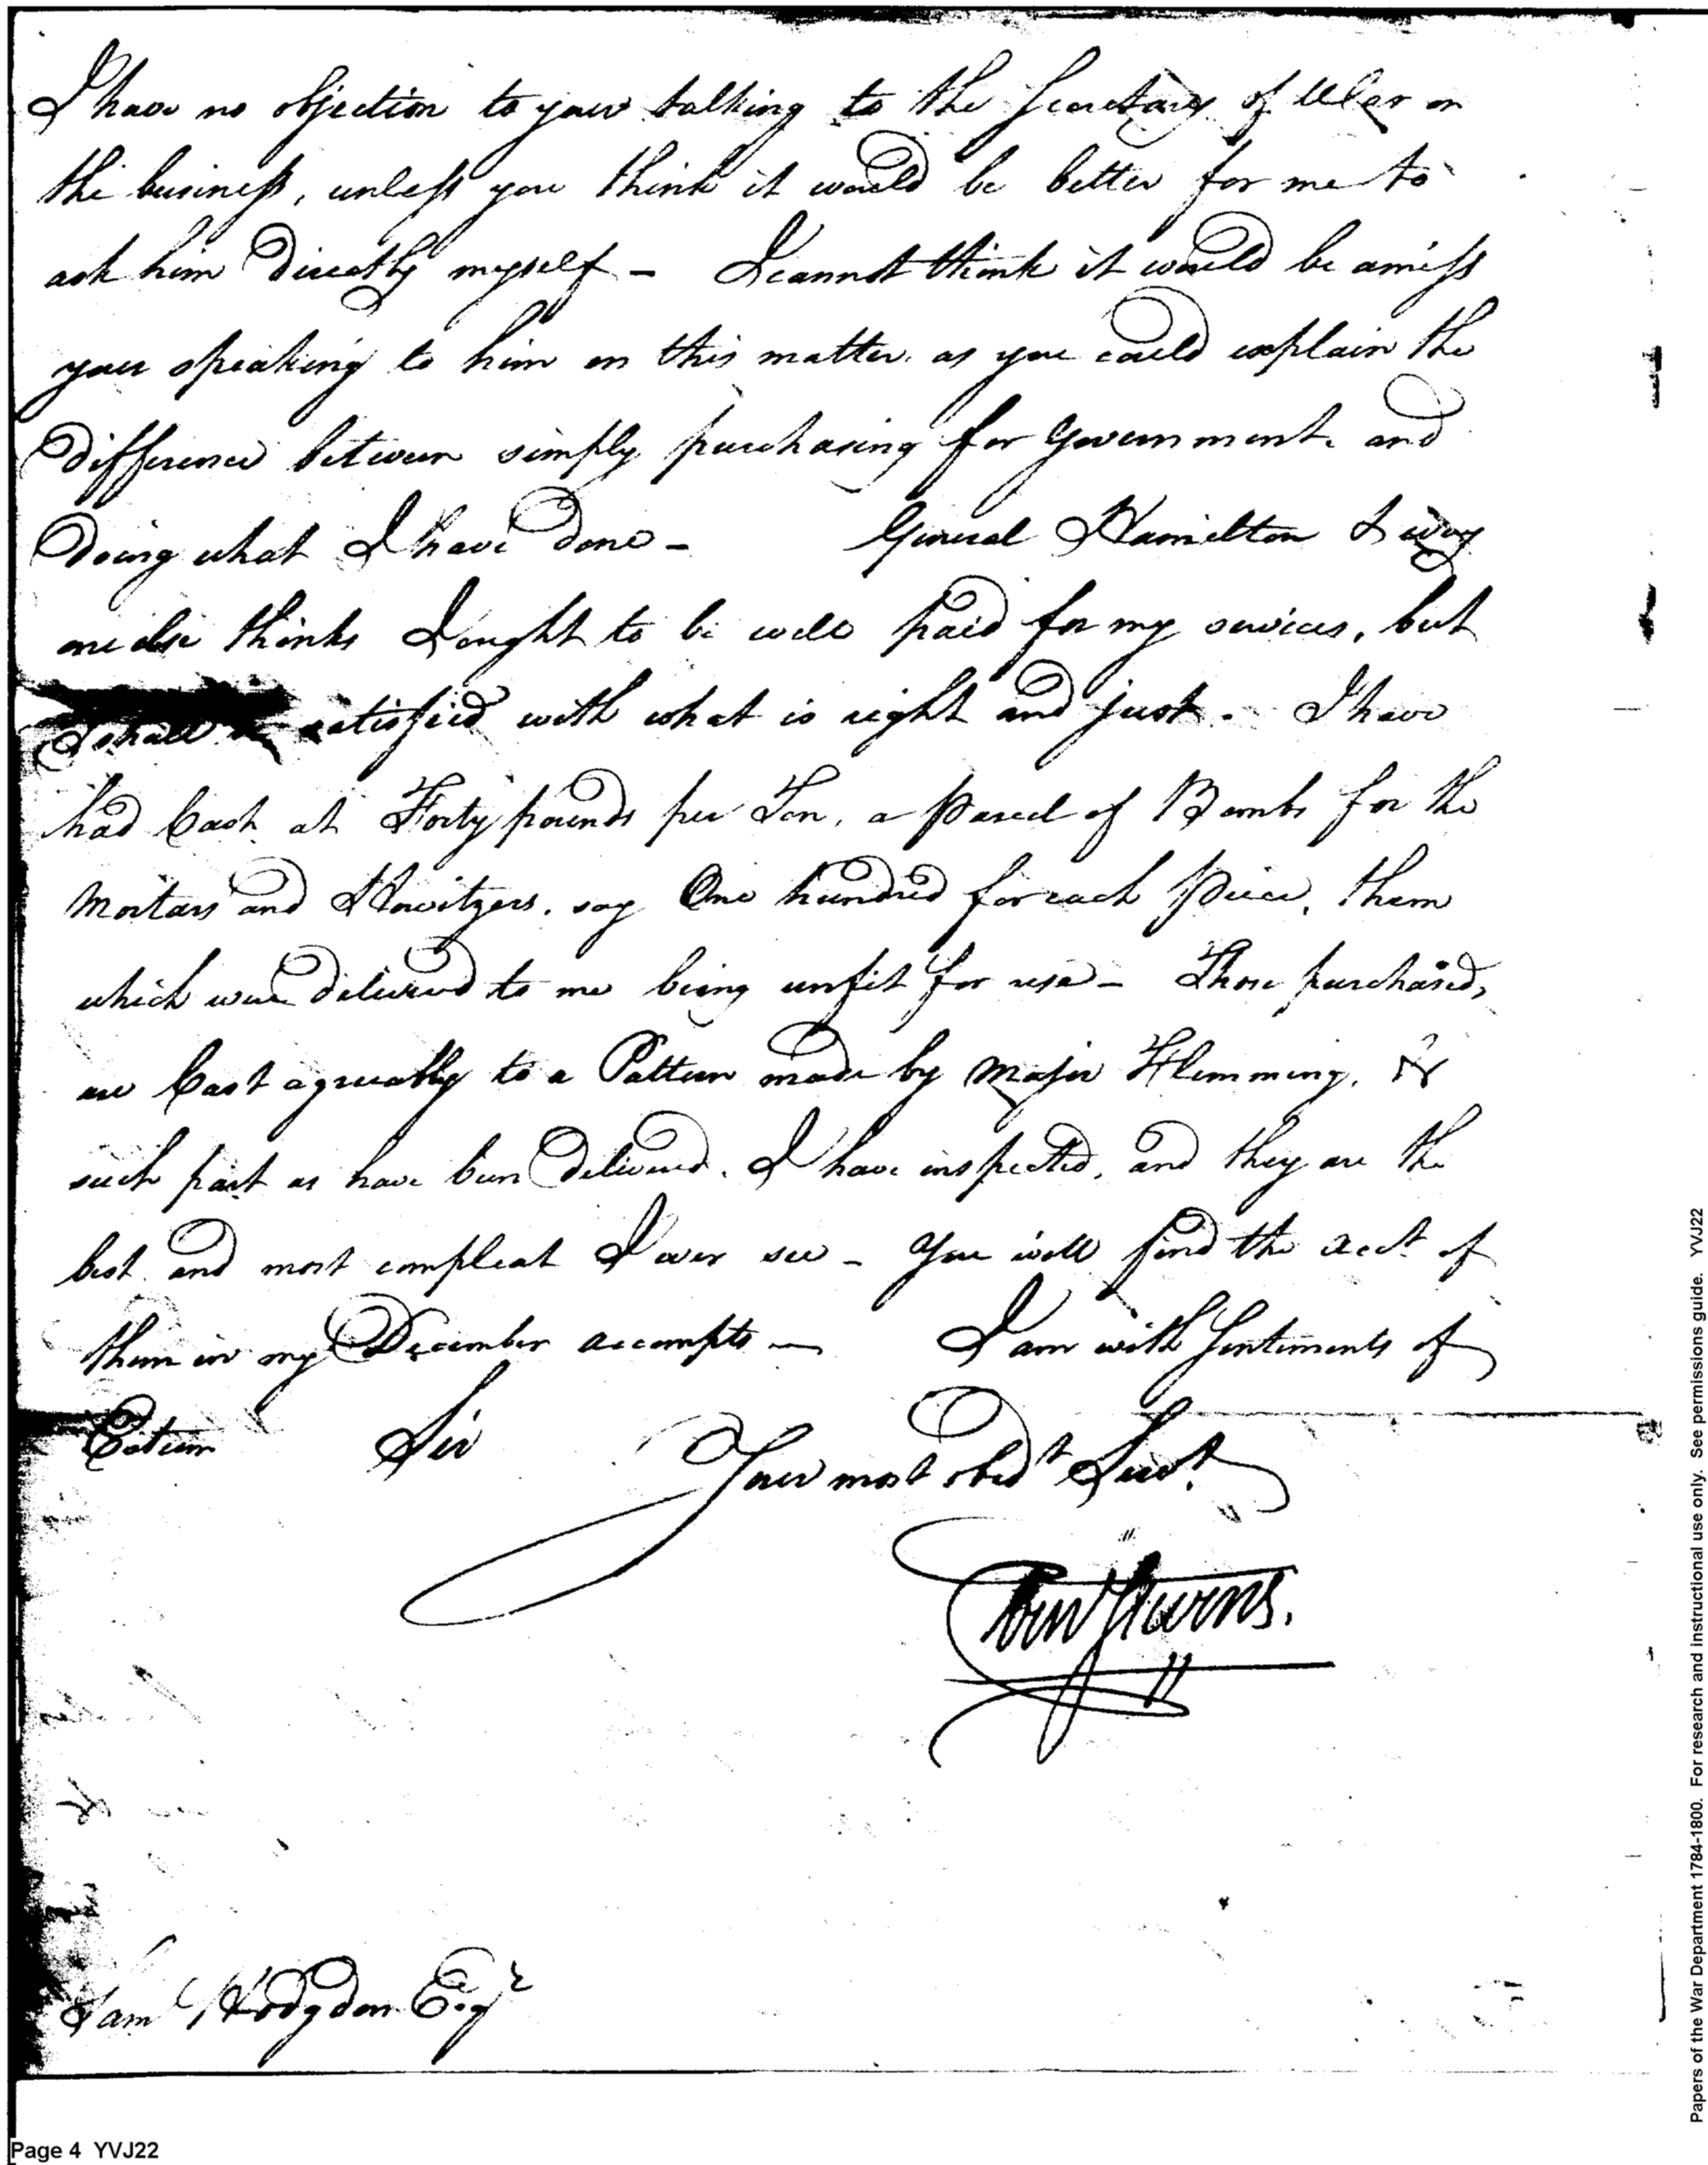 I have no objection to your talking to the Secretary of War on
the business, unless you think it would be better for me to
ask him Directly myself – I cannot think it would be amiss
your speaking to him on this matter, as you could explain the
Difference between simply purchasing for Government and
Doing what I have done – General Hamilton & every
one else thinks I ought to be well paid for my services, but
I shall be satisfied with what is right and just. I have
had Cast at Forty pounds per Ton, a parcel of Bombs for the
Mortars and Howitzers, say One hundred for each Piece, them
which were delivered to me being unfit for use – Those purchased,
are Cast agreeably to a Pattern made by Major Flemming, &
such part as have been Delivered, I have inspected, and they are the
best and most compleat I ever see – You will find the acct. of
them in my December accompts — I am with Sentiments of
Esteem Sir
Your most obedt Servt.
Eben Stevens.
Sam Hodgdon Esqr
Page 4 YVJ22
Papers of the War Department 1784-1800. For research and instructional use only. See permissions guide. YVJ22